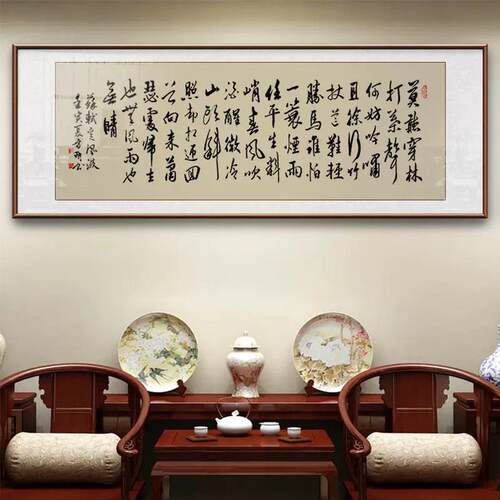 莫聽穿林
打葉聲
何妨吟嘯
且徐行竹
杖芒鞋輕
勝馬誰怕
一蓑煙雨
任平生料
峭春風吹
酒醒微冷
山頭斜
照却相迎回
首向来蕭
瑟處歸去
也無風雨也
無晴
蘇軾定風波
壬寅夏